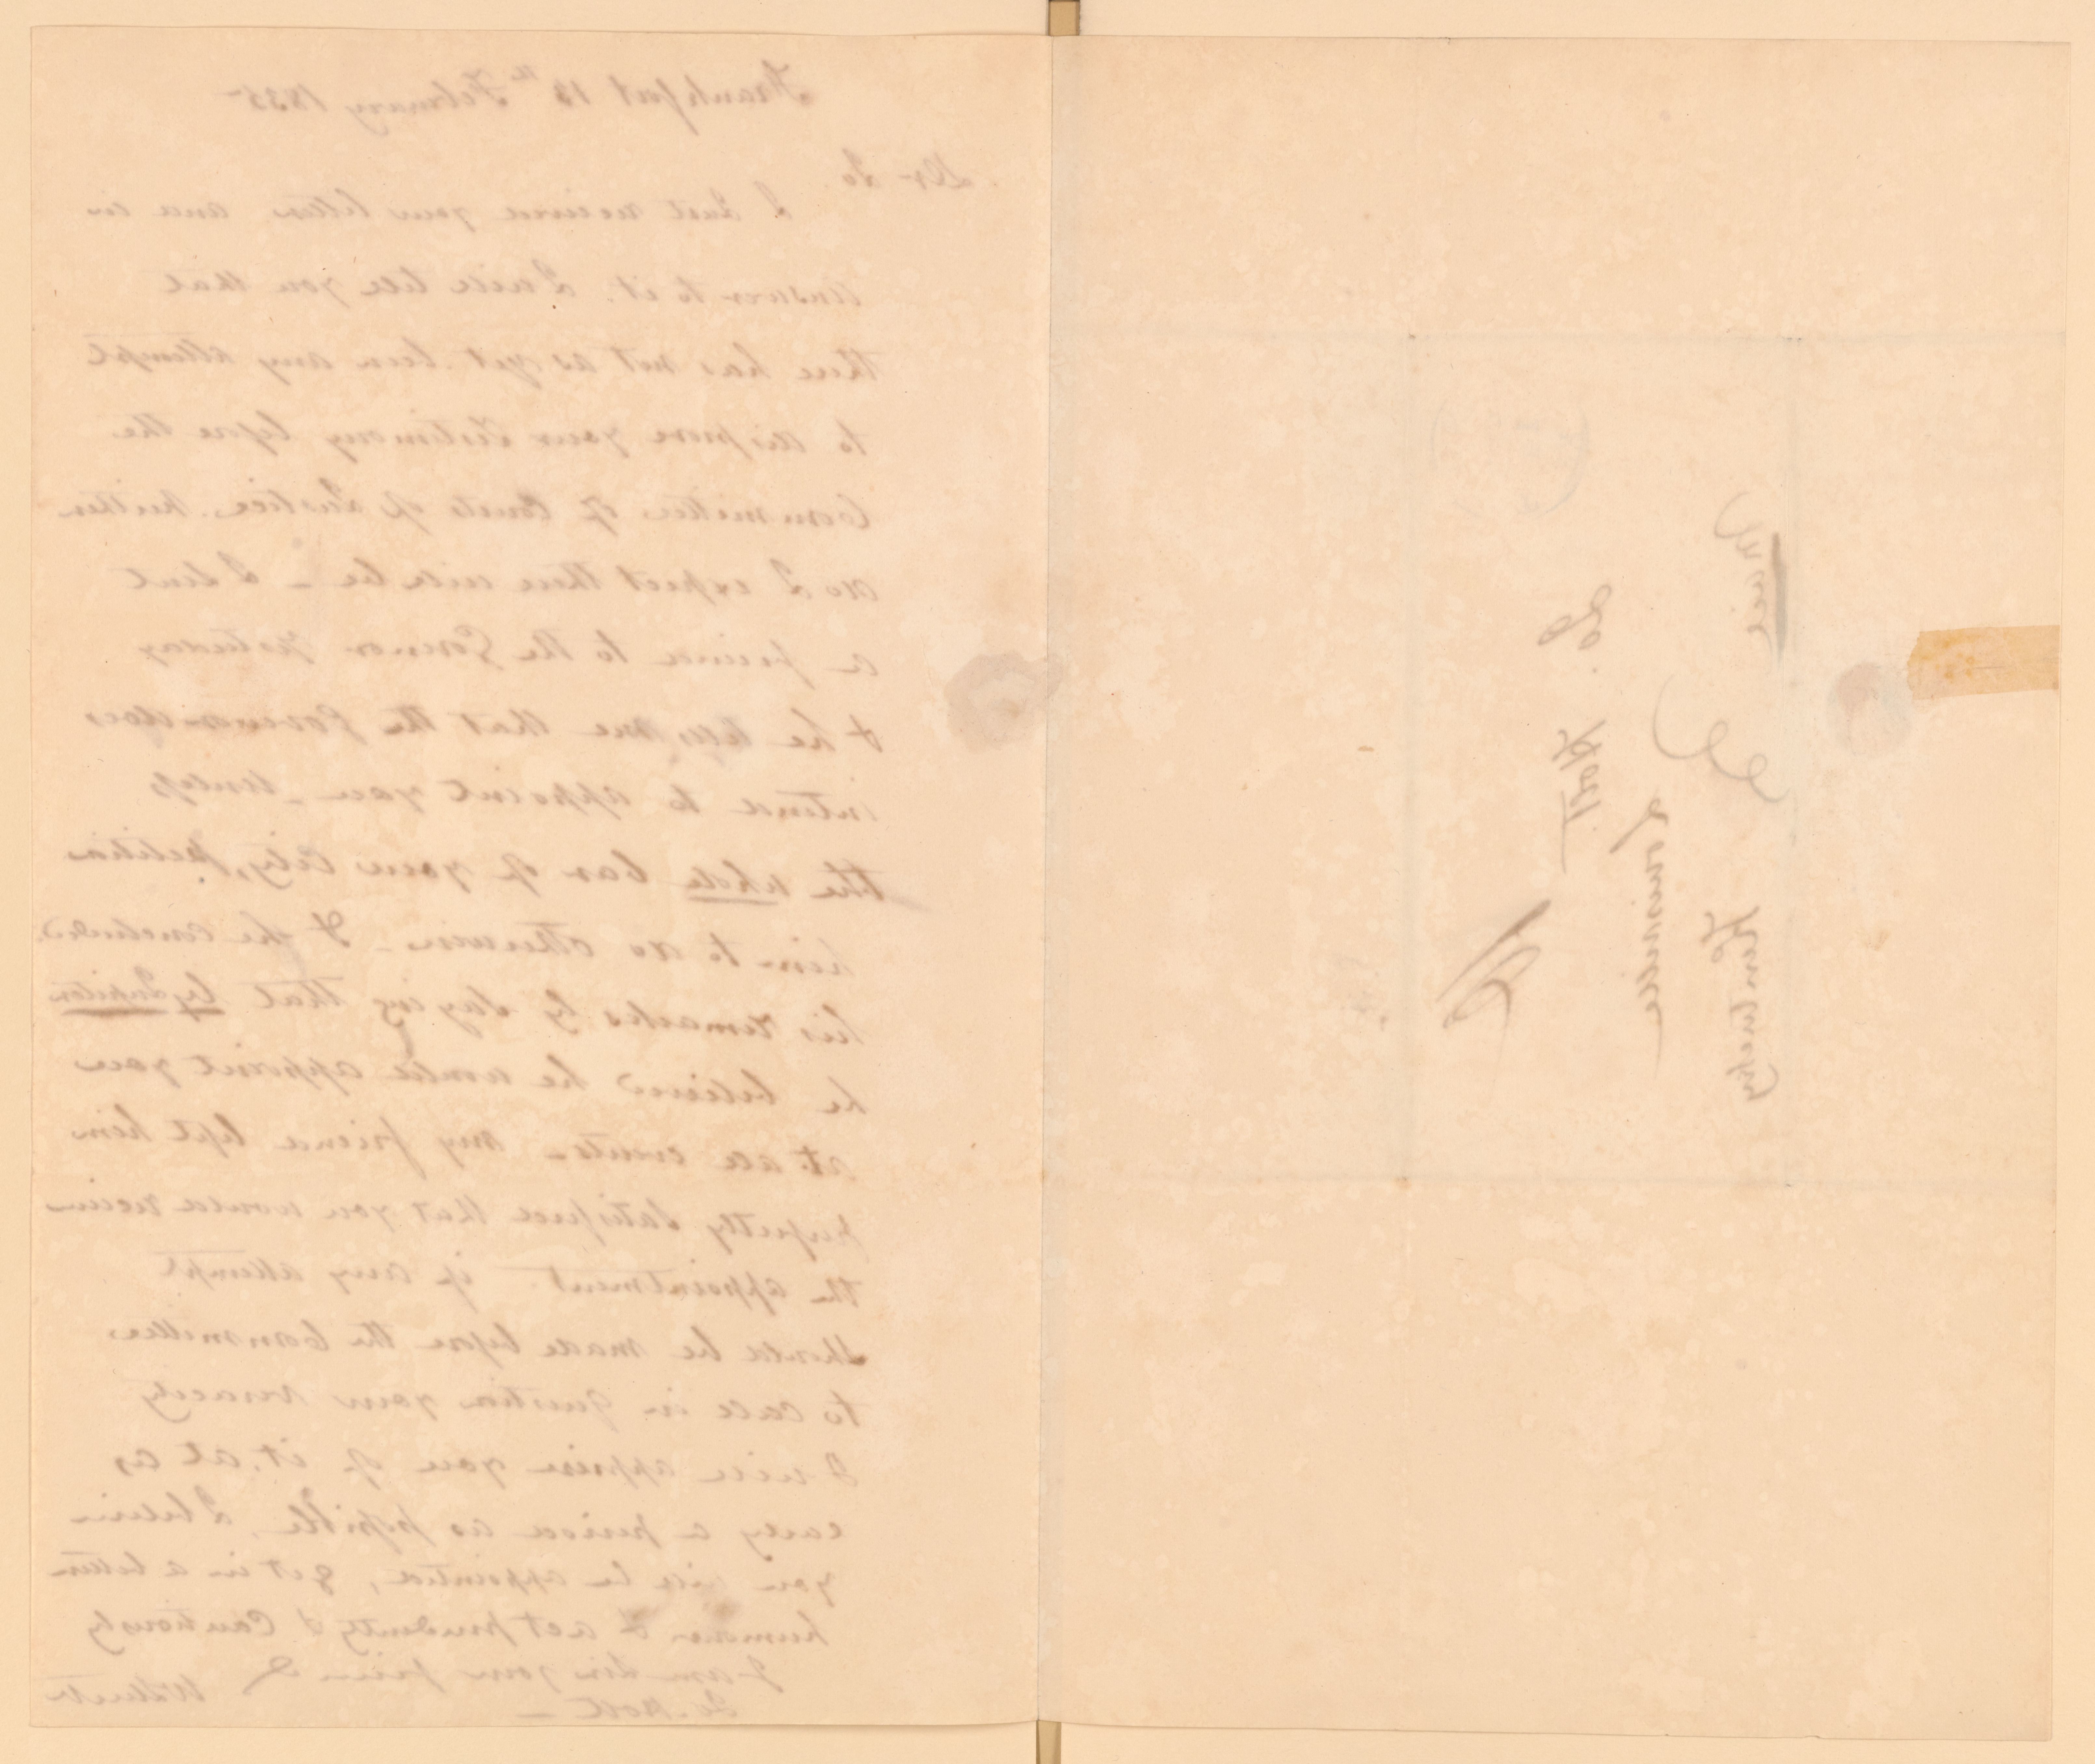 Frankfort 13th February 1835
Dr Sr.
I Just received your letter and in
answer to it. I will tell you that
there has not as yet been any attempt
to disprove your Testimony before the
Committee of Courts of Justice. neither
do I expect there will be — I sent
a friend to the Governor yesterday
& he tells me that the Governor does
intend to appoint you — unless
the whole bar of your City, petition
him to do otherwise — & he concluded
his remarks by saying that by Jupiter
he believed he would appoint you
at all events — my friend left him
perfectly satisfied that you would receive
the appointment. if any attempt
should be made before the Committee
to call in question your veracity
I will apprise you of it, at as
early a period as possible, I believe
you will be appointed, get in a better
humour & act prudently & Cautiously
I am Sir your friend